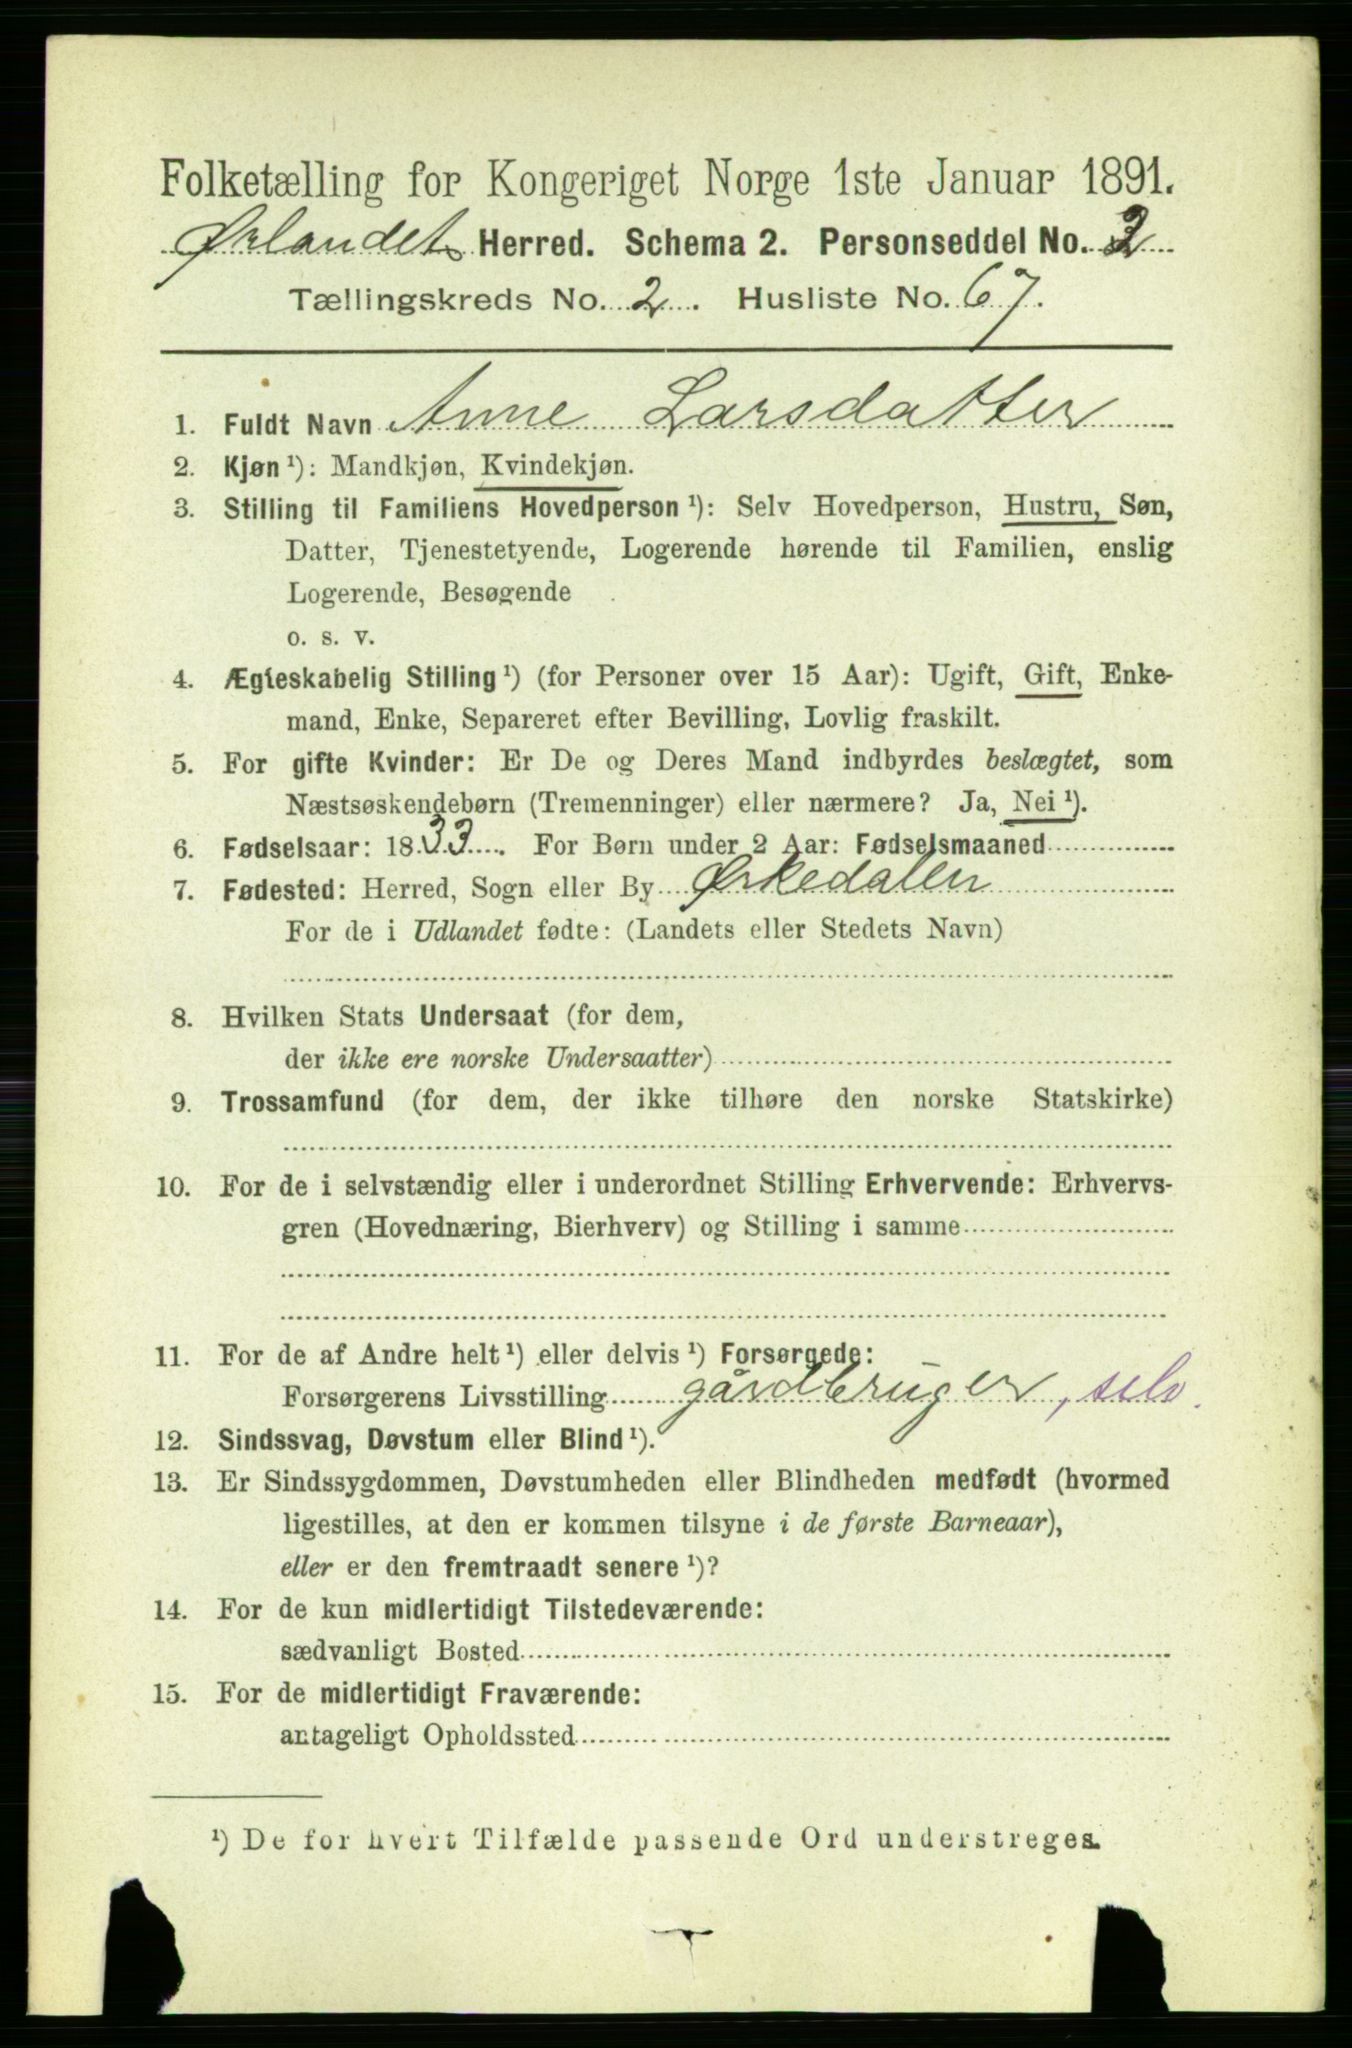 Folketælling for Kongeriget Norge 1ste Januar 1891.
Ørlandet Herred. Schema 2. Personseddel No. 2
Tællingskreds No. 2. Husliste No. 67.
1. Fuldt Navn Anne Larsdatter
2. Kjøn ¹): Mandkjøn, Kvindekjøn.
3. Stilling til Familiens Hovedperson ¹): Selv Hovedperson, Hustru, Søn,
Datter, Tjenestetyende, Logerende hørende til Familien, enslig
Logerende, Besøgende
o. s. v.
4. Ægteskabelig Stilling ¹) (for Personer over 15 Aar): Ugift, Gift, Enke-
mand, Enke, Separeret efter Bevilling, Lovlig fraskilt.
5. For gifte Kvinder: Er De og Deres Mand indbyrdes beslægtet, som
Næstsøskendebørn (Tremenninger) eller nærmere? Ja, Nei ¹).
6. Fødselsaar: 1833. For Børn under 2 Aar: Fødselsmaaned
7. Fødested: Herred, Sogn eller By Ørkedalen
For de i Udlandet fødte: (Landets eller Stedets Navn)
8. Hvilken Stats Undersaat (for dem,
der ikke ere norske Undersaatter)
9. Trossamfund (for dem, der ikke tilhøre den norske Statskirke)
10. For de i selvstændig eller i underordnet Stilling Erhvervende: Erhvervs-
gren (Hovednæring, Bierhverv) og Stilling i samme
11. For de af Andre helt ¹) eller delvis ¹) Forsørgede:
Forsørgerens Livsstilling gårdbruger, selv.
12. Sindssvag, Døvstum eller Blind ¹).
13. Er Sindssygdommen, Døvstumheden eller Blindheden medfødt (hvormed
ligestilles, at den er kommen tilsyne i de første Barneaar),
eller er den fremtraadt senere ¹)?
14. For de kun midlertidigt Tilstedeværende:
sædvanligt Bosted
15. For de midlertidigt Fraværende:
antageligt Opholdssted
¹) De for hvert Tilfælde passende Ord understreges.